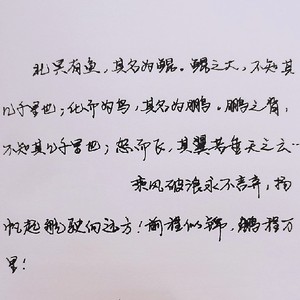 北冥有鱼，其名为鲲。鲲之大，不知其
几千里也；化而为鸟，其名为鹏。鹏之背，
不知其几千里也；怒而飞，其翼若垂天之云…
乘风破浪永不言弃，扬
帆起航驶向远方！前程似锦，鹏程万
里！